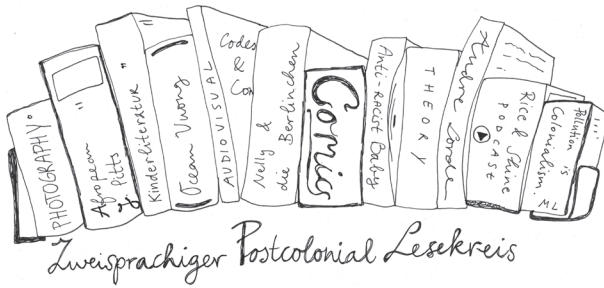 PHOTOGRAPHY
Afropean
by Pitts
"Kinderliteratur"
Ocean Vuong
AUDIOVISUAL
Codes
&
Nelly &
die Berlinchen
Comics
Anti-racist Baby
THEORY
Audre Lorde
Rice & Shine
PODCAST
Pollution is
Colonialism. ML
Zweisprachiger Postcolonial Lesekreis